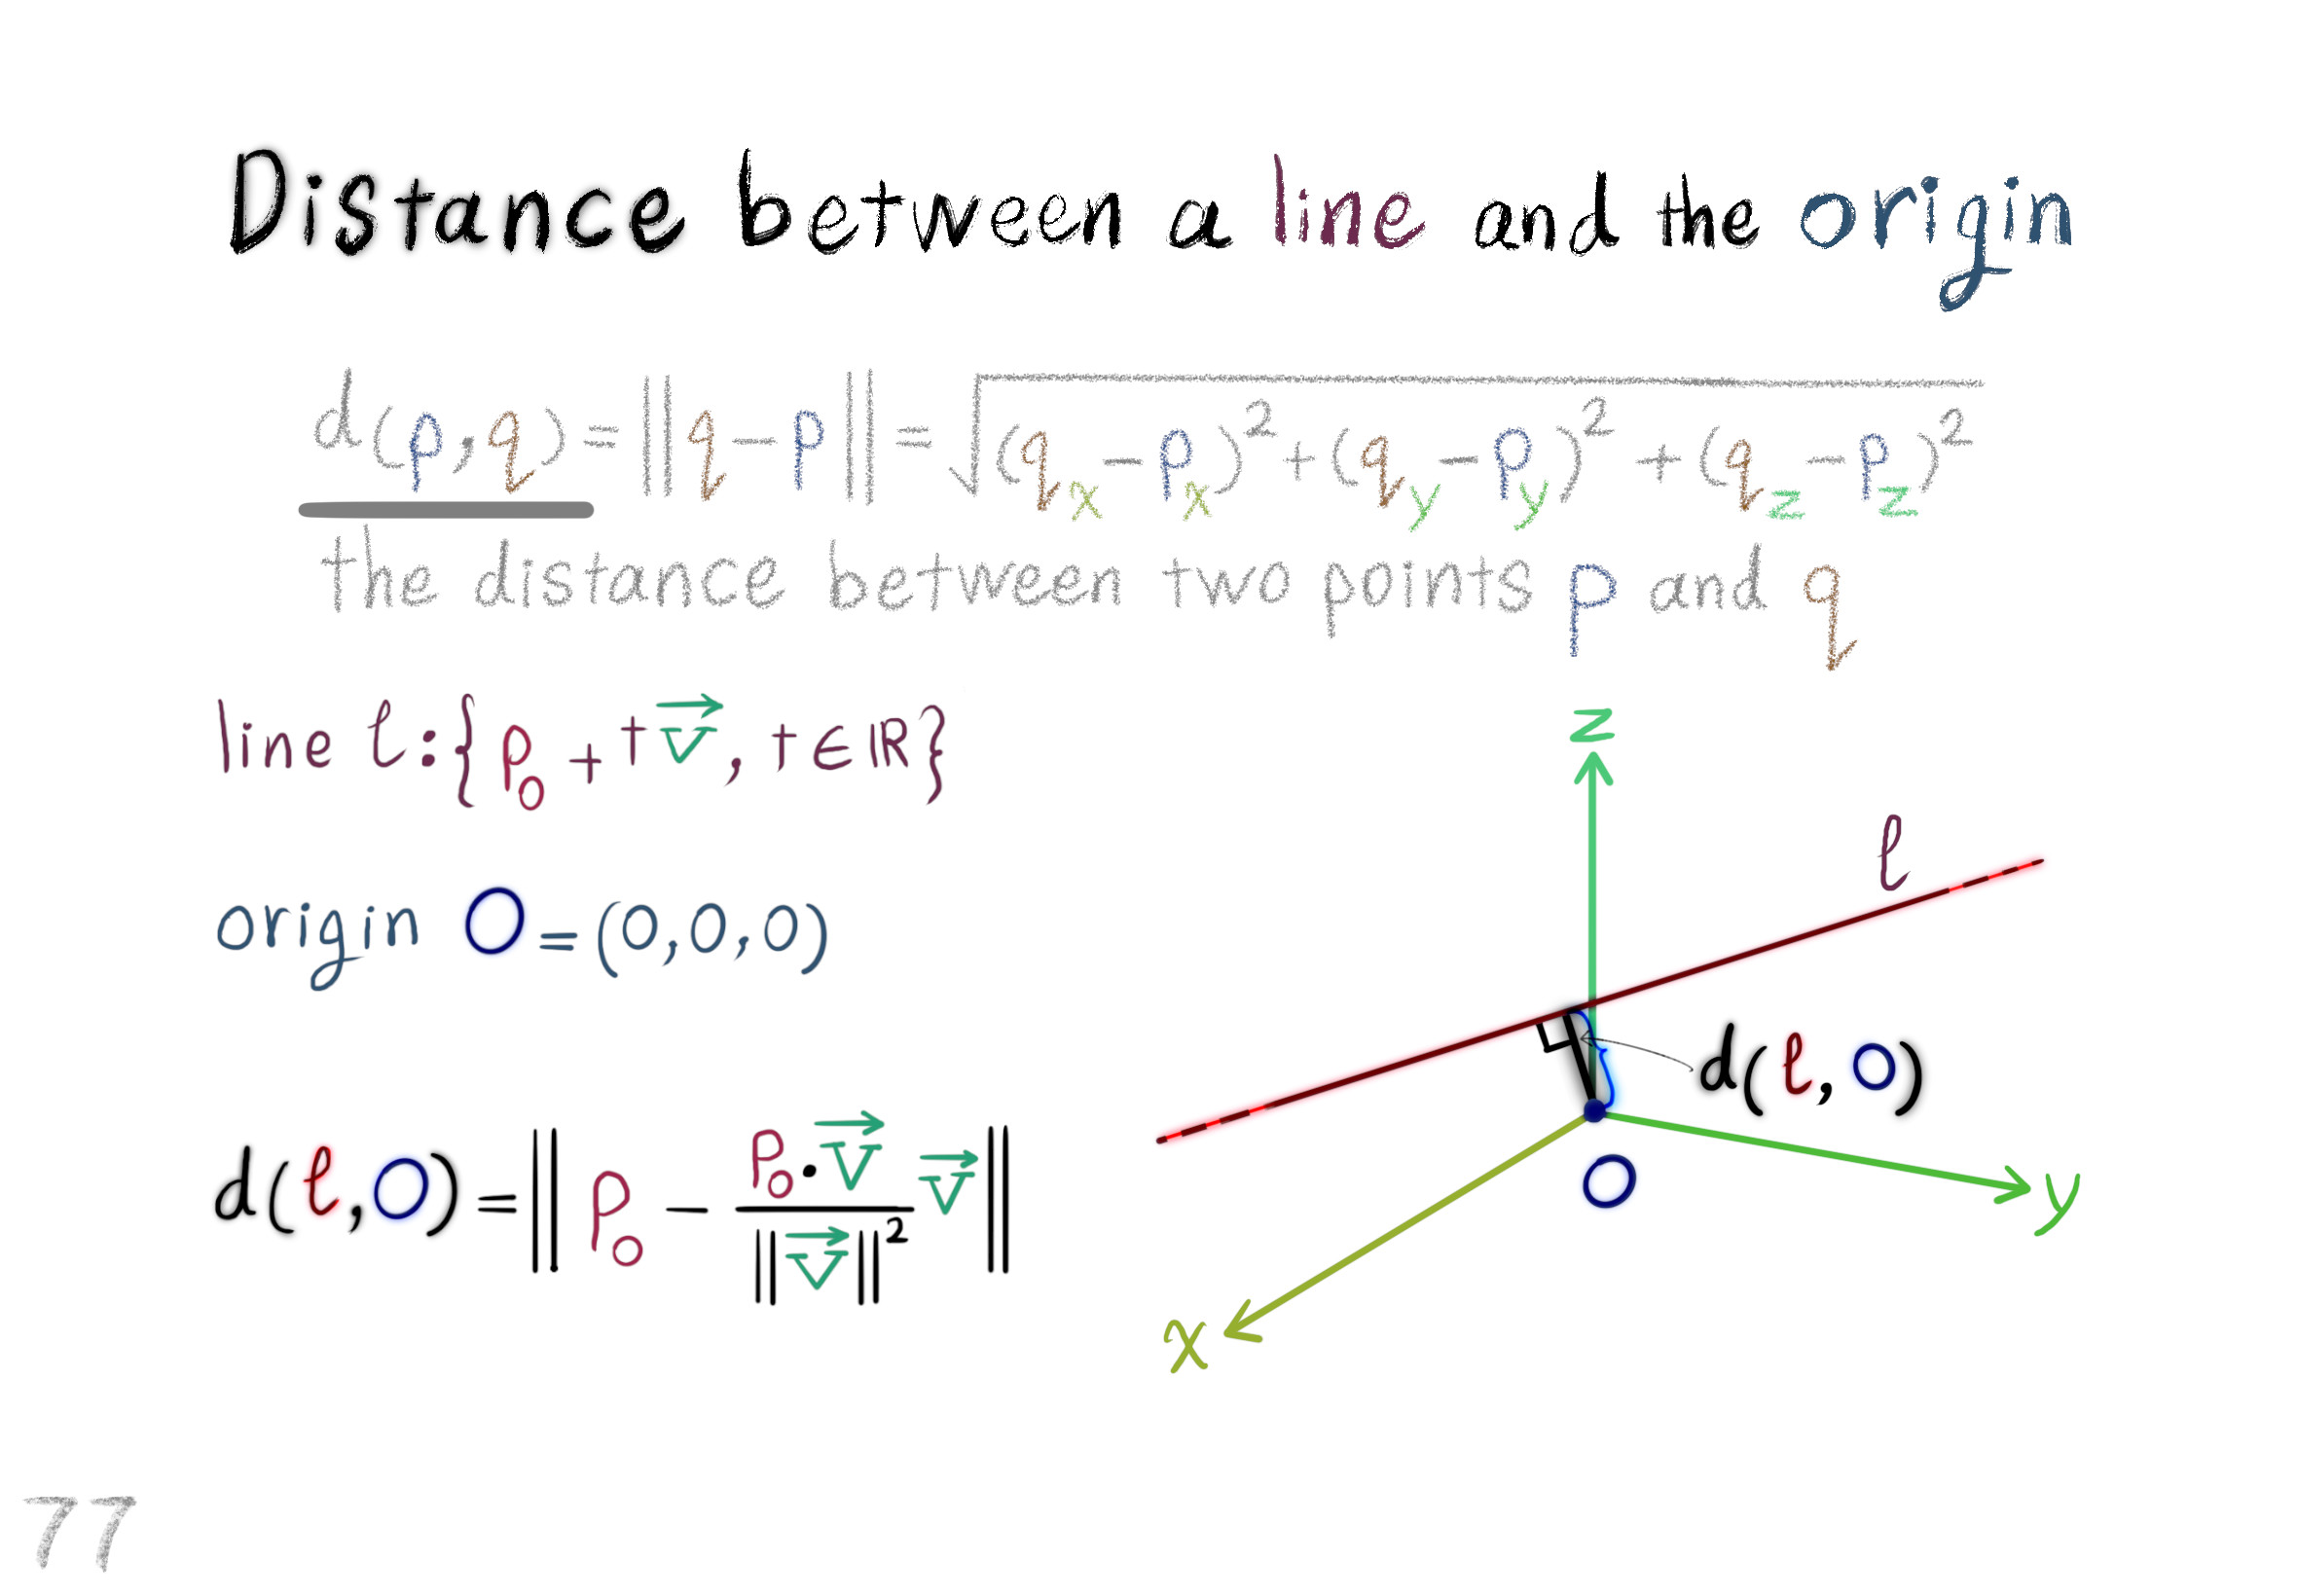 Distance between a line and the origin
d(p,q) = ||q − p|| = √(q_x − p_x)² + (q_y − p_y)² + (q_z − p_z)²
the distance between two points p and q
line ℓ: {p₀ + t v⃗, t ∈ ℝ}
origin O = (0,0,0)
d(ℓ,O) = || p₀ − (p₀ · v⃗)/||v⃗||² v⃗ ||
z
ℓ
d(ℓ,O)
O
y
x
77